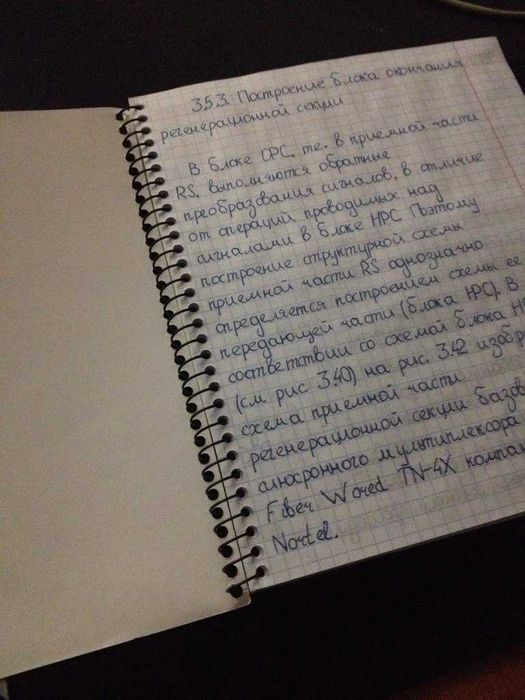 3.5.3. Построение блока окончания
регенерационной секции
В блоке СРС, т.е. в приемной части
RS, выполняются обратные
преобразования сигналов, в отличие
от операций проводимых над
сигналами в блоке НРС. Поэтому
построение структурной схемы
приемной части RS однозначно
определяется построением схемы ее
передающей части (блока НРС). В
соответствии со схемой блока Н
(см. рис 3.40) на рис. 3.42 изобр
схема приемной части
регенерационной секции базов
синхронного мультиплексора
Fiber Wored TN-4X компан
Nortel.